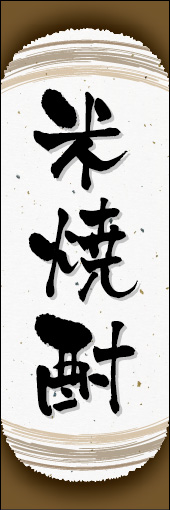 米焼酎